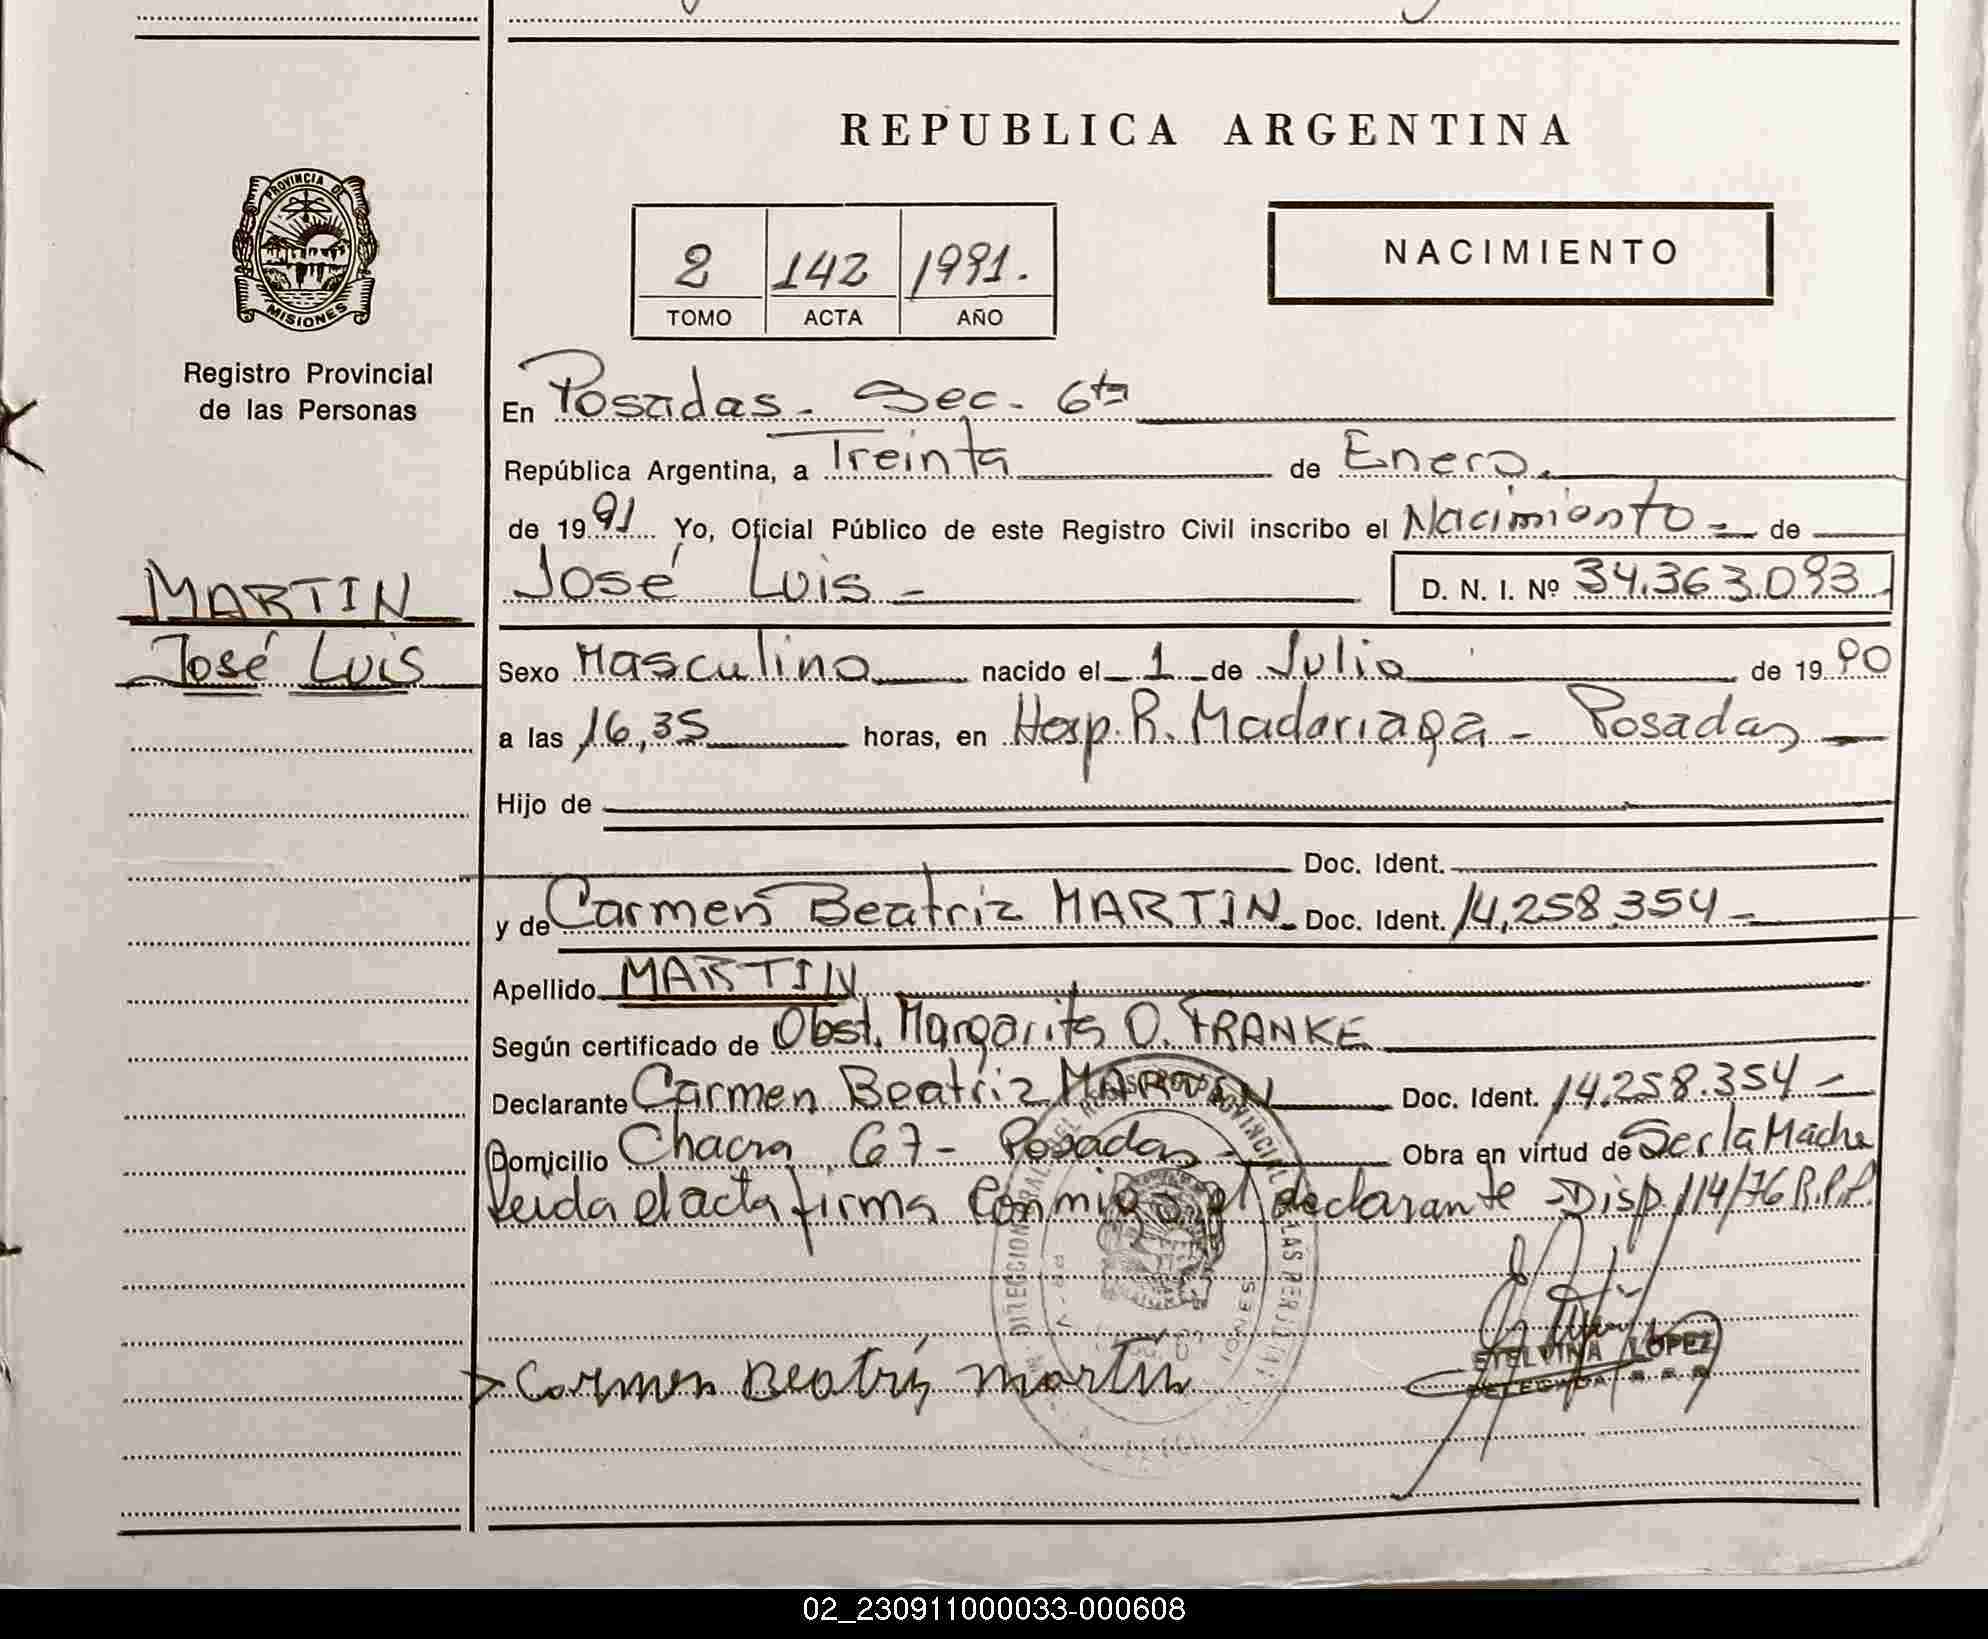 REPUBLICA ARGENTINA
PROVINCIA DE
MISIONES
Registro Provincial
de las Personas
2 142 1991.
TOMO ACTA AÑO
NACIMIENTO
MARTIN
José Luis
En Posadas - Sec. 6ta
República Argentina, a Treinta de Enero
de 1991 Yo, Oficial Público de este Registro Civil inscribo el Nacimiento de
José Luis - D. N. I. Nº 34.363.093
Sexo Masculino nacido el 1 de Julio de 1990
a las 16,35 horas, en Hosp. R. Madariaga - Posadas
Hijo de
Doc. Ident.
y de Carmen Beatriz MARTIN Doc. Ident. 14.258.354
Apellido MARTIN
Según certificado de Obst. Margarita O. FRANKE
Declarante Carmen Beatriz MARTIN Doc. Ident. 14.258.354
Domicilio Chacra 67 - Posadas Obra en virtud de Ser la Madre
Leida el acta firma conmigo el declarante Disp. 114/76 R.P.P.
Carmen Beatriz Martin
ESTELVINA LOPEZ
DELEGADA
02_230911000033-000608